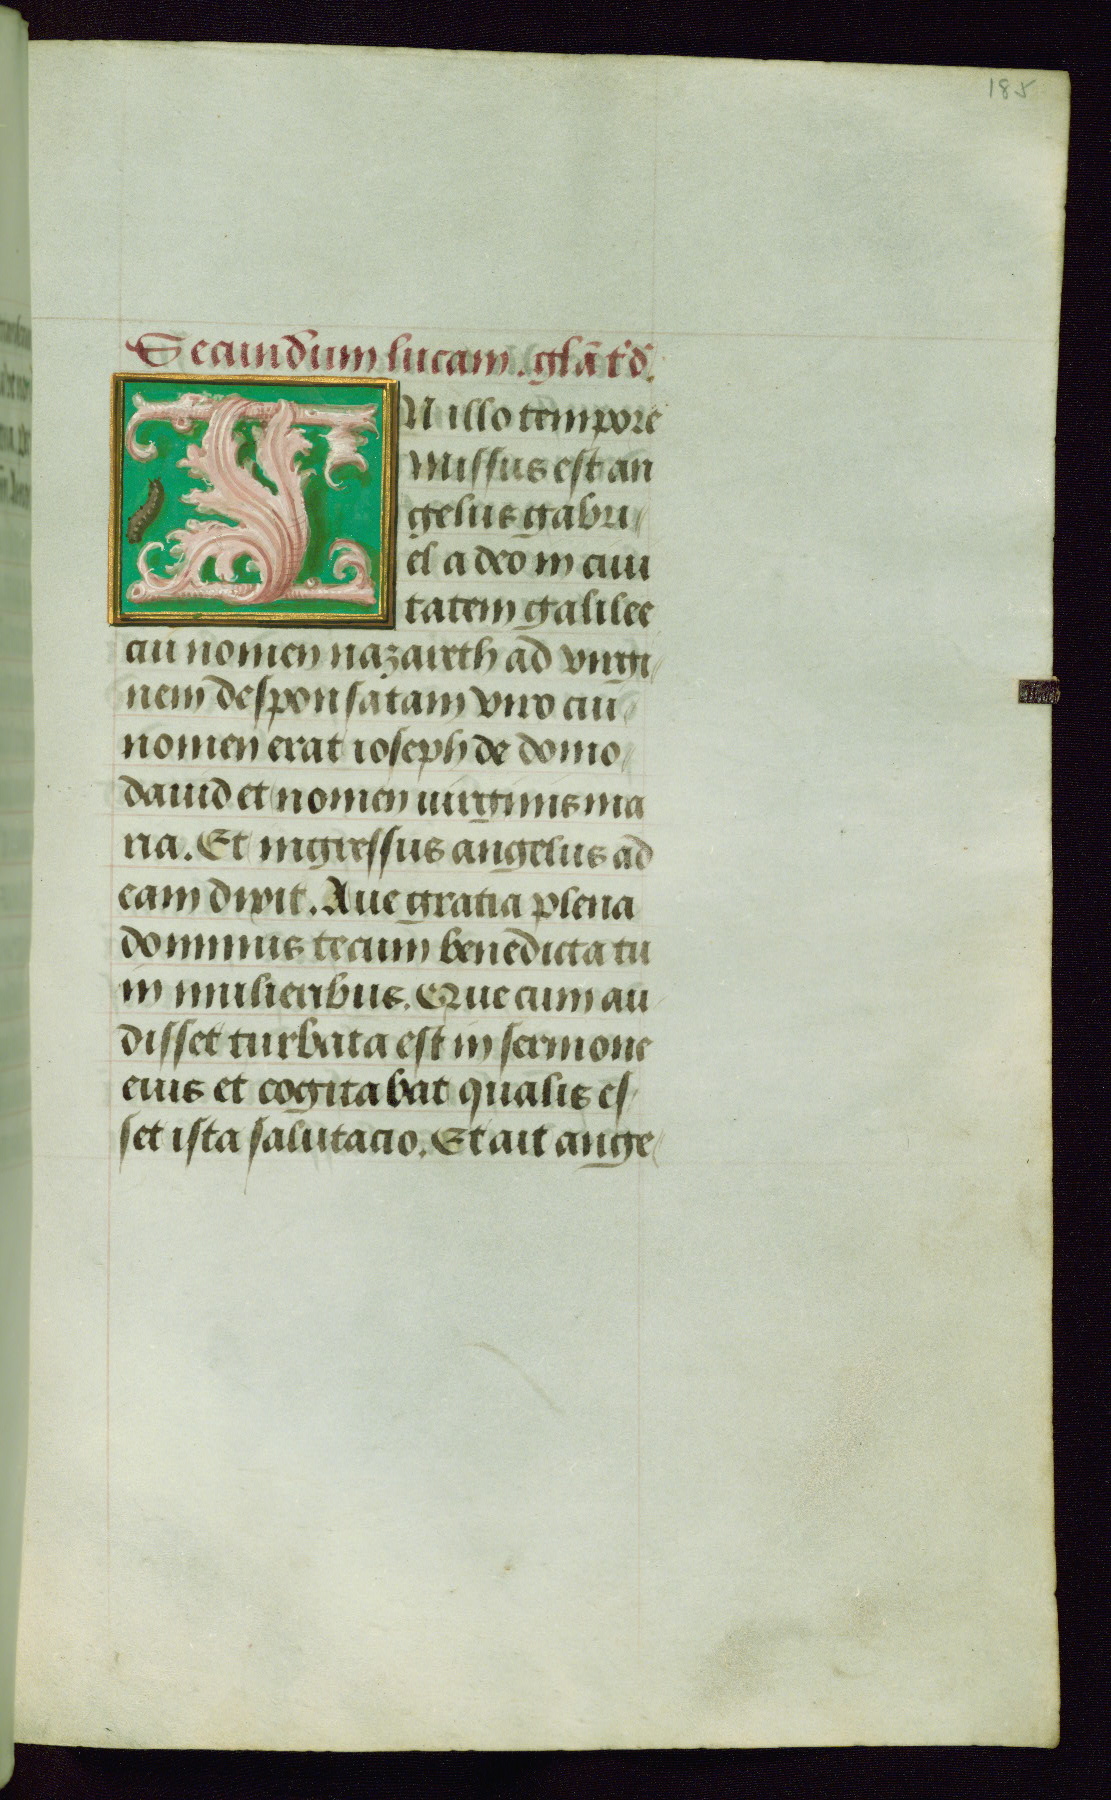 185
Secundum lucam. gl̄a t' d̄.
IN illo tempore
Missus est an
gelus gabri
el a deo in ciui
tatem galilee
cui nomen nazareth ad virgi
nem desponsatam viro cui
nomen erat ioseph de domo
dauid et nomen uirginis ma
ria. Et ingressus angelus ad
eam dixit. Aue gratia plena
dominus tecum benedicta tu
in mulieribus. Que cum au
disset turbata est in sermone
eius et cogitabat qualis es
set ista salutacio. Et ait ange